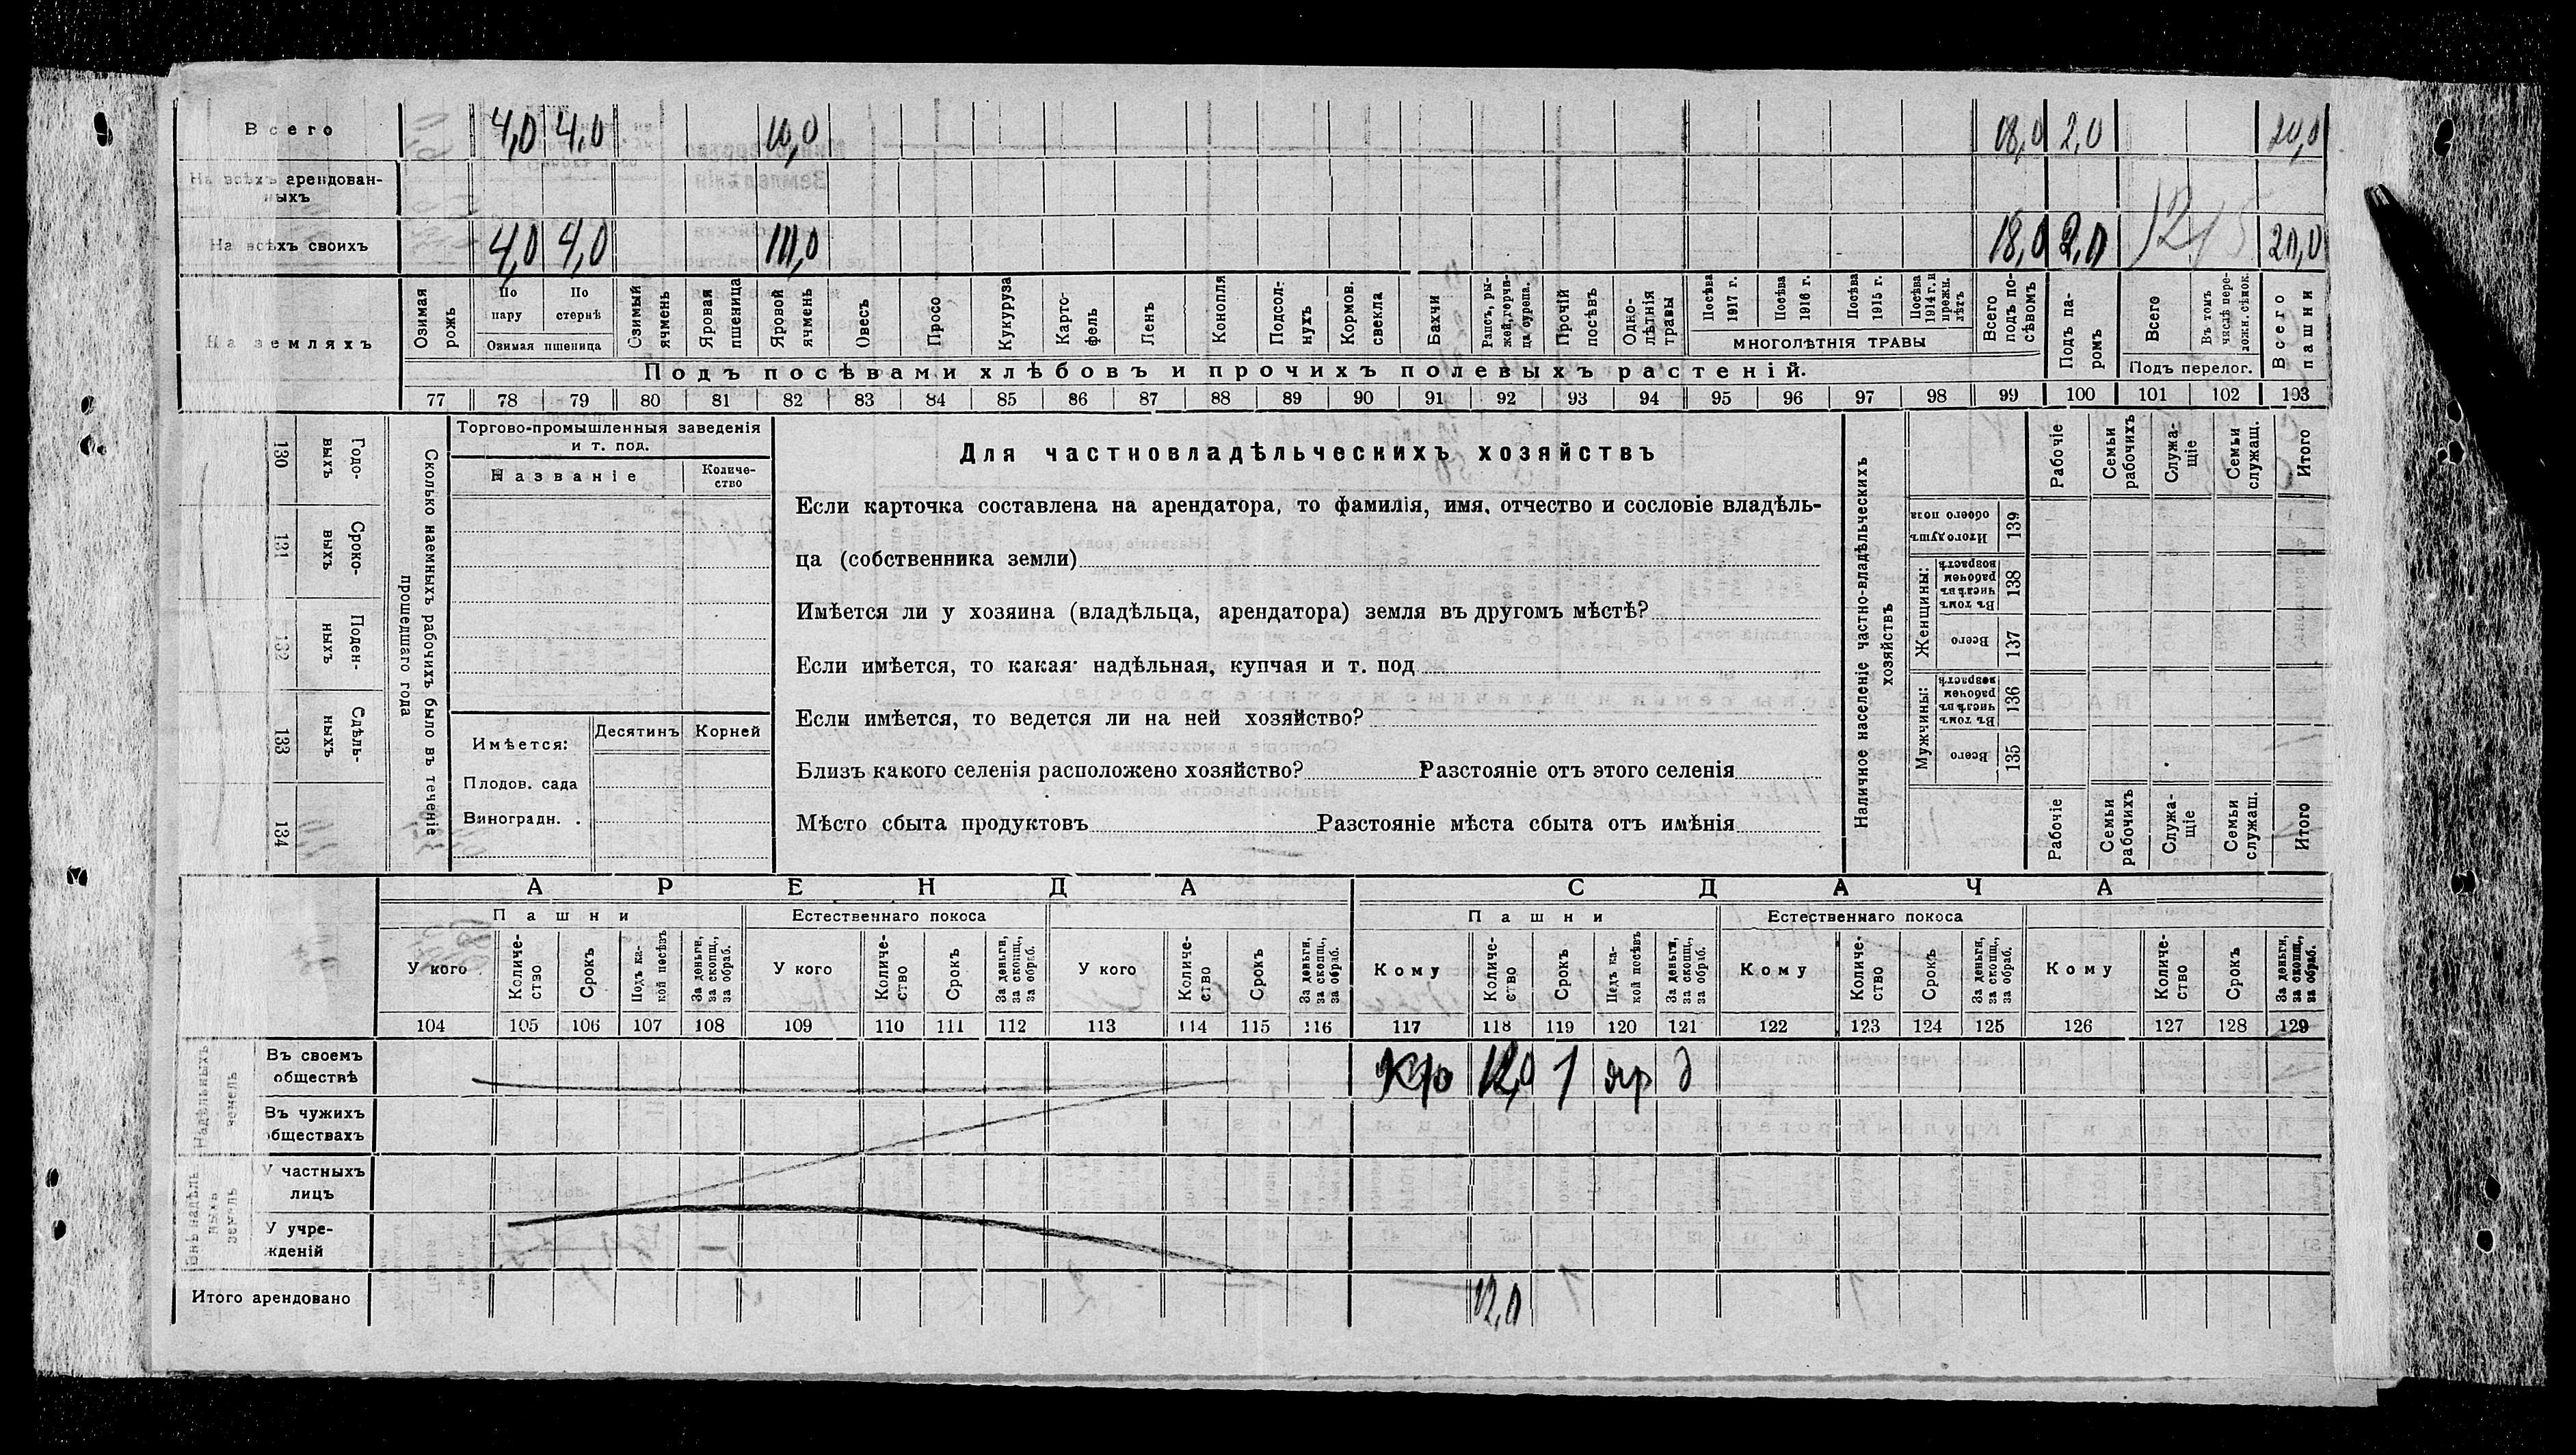 Всего 4,0 4,0 10,0 18,0 2,0 20,0
На всѣхъ арендован-
ныхъ
На всѣхъ своихъ 4,0 4,0 10,0 18,0 2,0 20,0
На земляхъ
Озимая рожь
По пару
По стернѣ
Озимая пшеница
Озимый ячмень
Яровая пшеница
Яровой ячмень
Овесъ
Просо
Кукуруза
Карто-
фель
Ленъ
Конопля
Подсол-
нухъ
Кормов. свекла
Бахчи
Рапсъ, ры-
жей, горчи-
ца сурепа.
Прочій посѣвъ
Одно-
лѣтнія травы
Посѣва 1917 г.
Посѣва 1916 г.
Посѣва 1915 г.
Посѣва 1914 г. и прежн. лѣтъ
МНОГОЛѢТНІЯ ТРАВЫ
Всего подъ по-
сѣвомъ
Подъ па-
ромъ
Всего
Въ томъ числѣ пере-
ложн. сѣнок.
Подъ перелог.
Всего пашни
Подъ посѣвами хлѣбовъ и прочихъ полевыхъ растеній.
77 78 79 80 81 82 83 84 85 86 87 88 89 90 91 92 93 94 95 96 97 98 99 100 101 102 103
130 Годо-
выхъ
131 Сроко-
выхъ
132 Поден-
ныхъ
133 Сдѣль-
ныхъ
134
Сколько наемныхъ рабочихъ было въ теченіе
прошедшаго года
Торгово-промышленныя заведенія
и т. под.
Названіе
Количе-
ство
Имѣется:
Десятинъ
Корней
Плодов. сада
Виноградн. .
Для частновладѣльческихъ хозяйствъ
Если карточка составлена на арендатора, то фамилія, имя, отчество и сословіе владѣль-
ца (собственника земли)
Имѣется ли у хозяина (владѣльца, арендатора) земля въ другомъ мѣстѣ?
Если имѣется, то какая: надѣльная, купчая и т. под
Если имѣется, то ведется ли на ней хозяйство?
Близъ какого селенія расположено хозяйство? Разстояніе отъ этого селенія
Мѣсто сбыта продуктовъ Разстояніе мѣста сбыта отъ имѣнія
Наличное населеніе частно-владѣльческихъ
хозяйствъ
Рабочіе
Семьи рабочихъ
Служа-
щіе
Семьи служащ.
Итого
Итого душъ обоего пола 139
Женщины:
Въ томъ числѣ въ рабочемъ возрастѣ 138
Всего 137
Мужчины:
Въ томъ числѣ въ рабочемъ возрастѣ 136
Всего 135
Рабочіе
Семьи рабочихъ
Служа-
щіе
Семьи служащ.
Итого
АРЕНДА
СДАЧА
Пашни
Естественнаго покоса
Пашни
Естественнаго покоса
У кого
Количе-
ство
Срокъ
Подъ ка-
кой посѣвъ
За деньги, за скопщ., за обраб.
У кого
Количе-
ство
Срокъ
За деньги, за скопщ., за обраб.
У кого
Количе-
ство
Срокъ
За деньги, за скопщ., за обраб.
Кому
Количе-
ство
Срокъ
Подъ ка-
кой посѣвъ
За деньги, за скопщ., за обраб.
Кому
Количе-
ство
Срокъ
За деньги, за скопщ., за обраб.
Кому
Количе-
ство
Срокъ
За деньги, за скопщ., за обраб.
104 105 106 107 108 109 110 111 112 113 114 115 116 117 118 119 120 121 122 123 124 125 126 127 128 129
Надѣльныхъ
земель
Въ своемъ
обществѣ
12,0 1 яр д
Въ чужихъ
обществахъ
У частныхъ
лицъ
У учре-
жденій
Итого арендовано 12,0